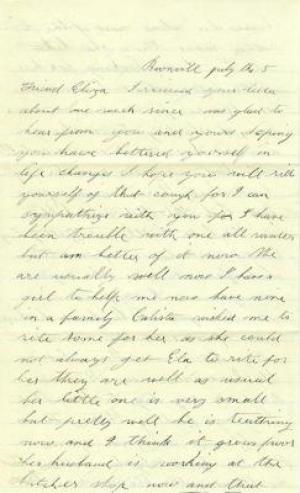 July the 5
Friend Eliza I received your letter
about one week since was glad to
hear from you and yours I
you have bettered yourself in
life changes I hope you will rid
yourself of that cough for I can
sympathize with you for I have
been trouble with one all winter
but am better of it now We
are usually well now I have a
girl to help me now have none
in a family Calista wished me to
rite some for her as she could
not always get Ela to rite for
her they are well as usual
her little one is very small
but pretty well he is teething
now and I think it grows poor
her husband is working at the
butcher shop now and that